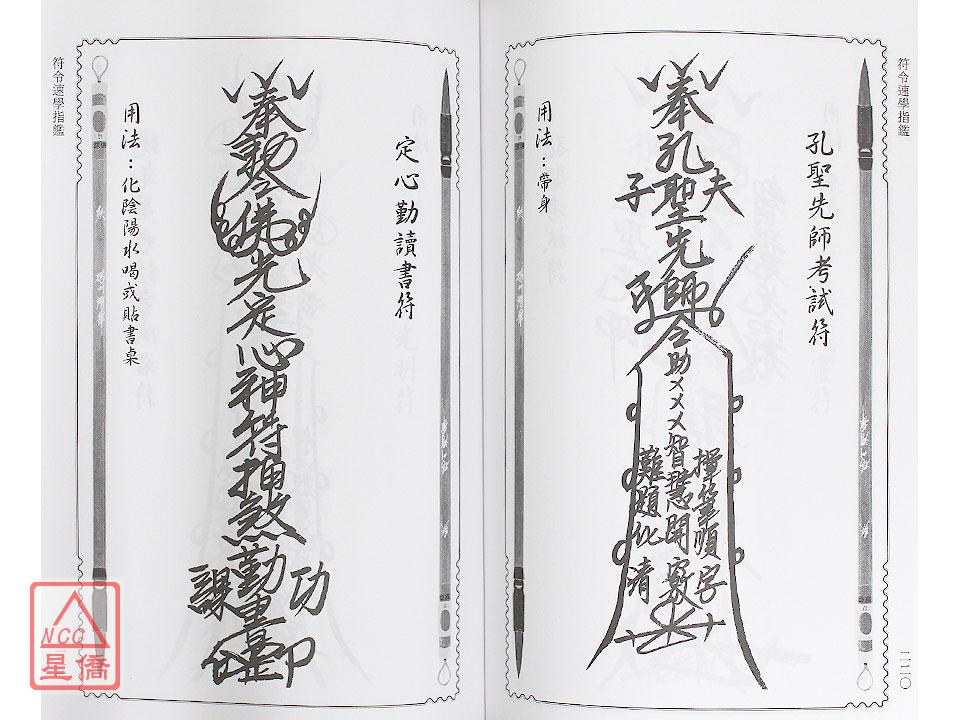 符令速學指鑑
孔聖先師考試符
奉孔聖先師
夫子
令助××××智慧開竅
揮筆順字
難題化清
用法：帶身
二二〇
定心勤讀書符
奉勅令佛光定心神符押煞勤書
功課
印
用法：化陰陽水喝或貼書桌
符令速學指鑑
NCC
星僑